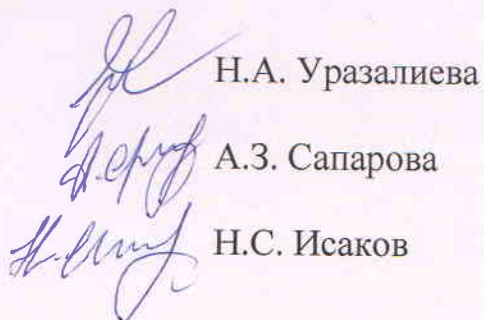 Н.А. Уразалиева
А.З. Сапарова
Н.С. Исаков